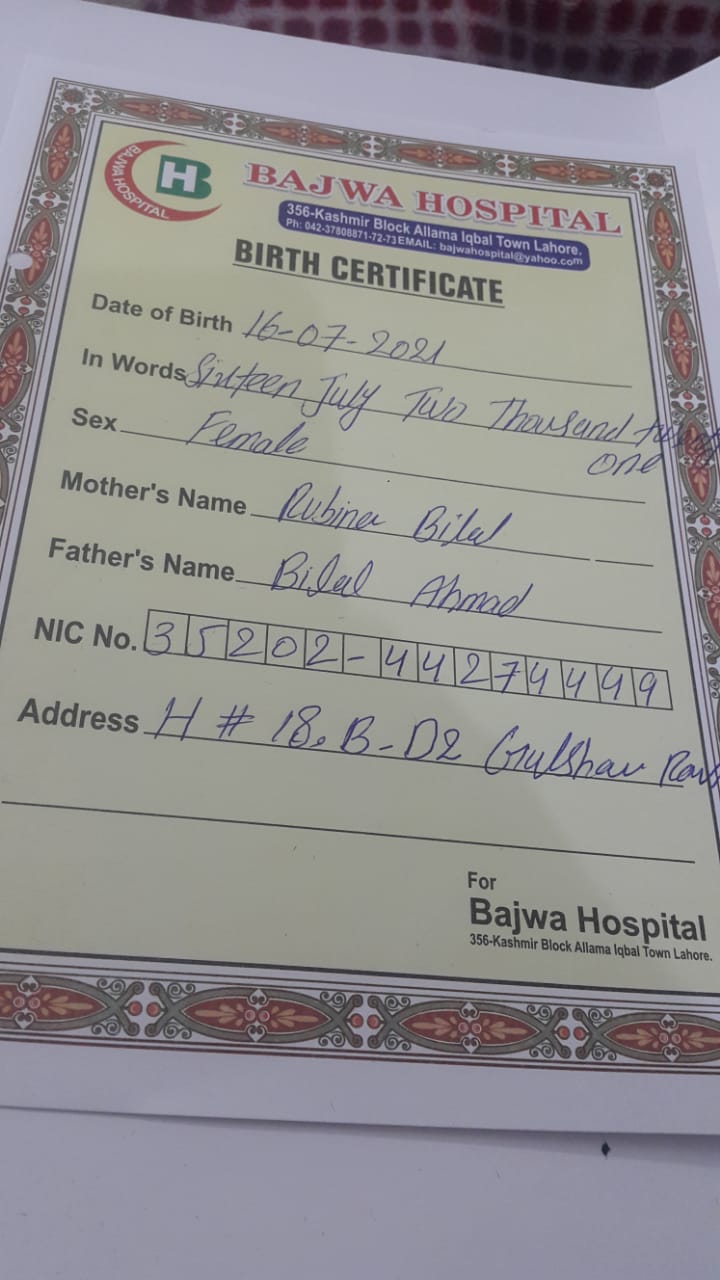 BAJWA HOSPITAL
HB
BAJWA HOSPITAL
356-Kashmir Block Allama Iqbal Town Lahore.
Ph: 042-37808871-72-73 EMAIL: bajwahospital@yahoo.com
BIRTH CERTIFICATE
Date of Birth 16-07-2021
In Words Sixteen July Two Thousand twenty
one
Sex Female
Mother's Name Rubina Bilal
Father's Name Bilal Ahmad
NIC No. 35202-44274449
Address H # 18. B-D2 Gulshan
For
Bajwa Hospital
356-Kashmir Block Allama Iqbal Town Lahore.